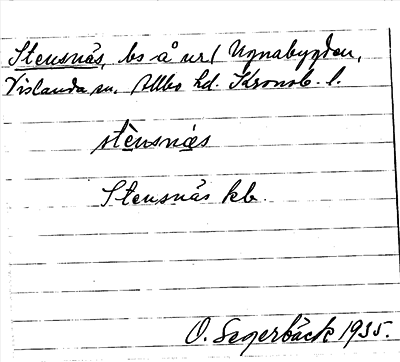 Stensnäs, bs å nr 1 Ugnabygden,
Vislanda sn. Allbo hd. Kronob. l.
stènsnæs
Stensnäs kb.
O. Segerbäck 1935.